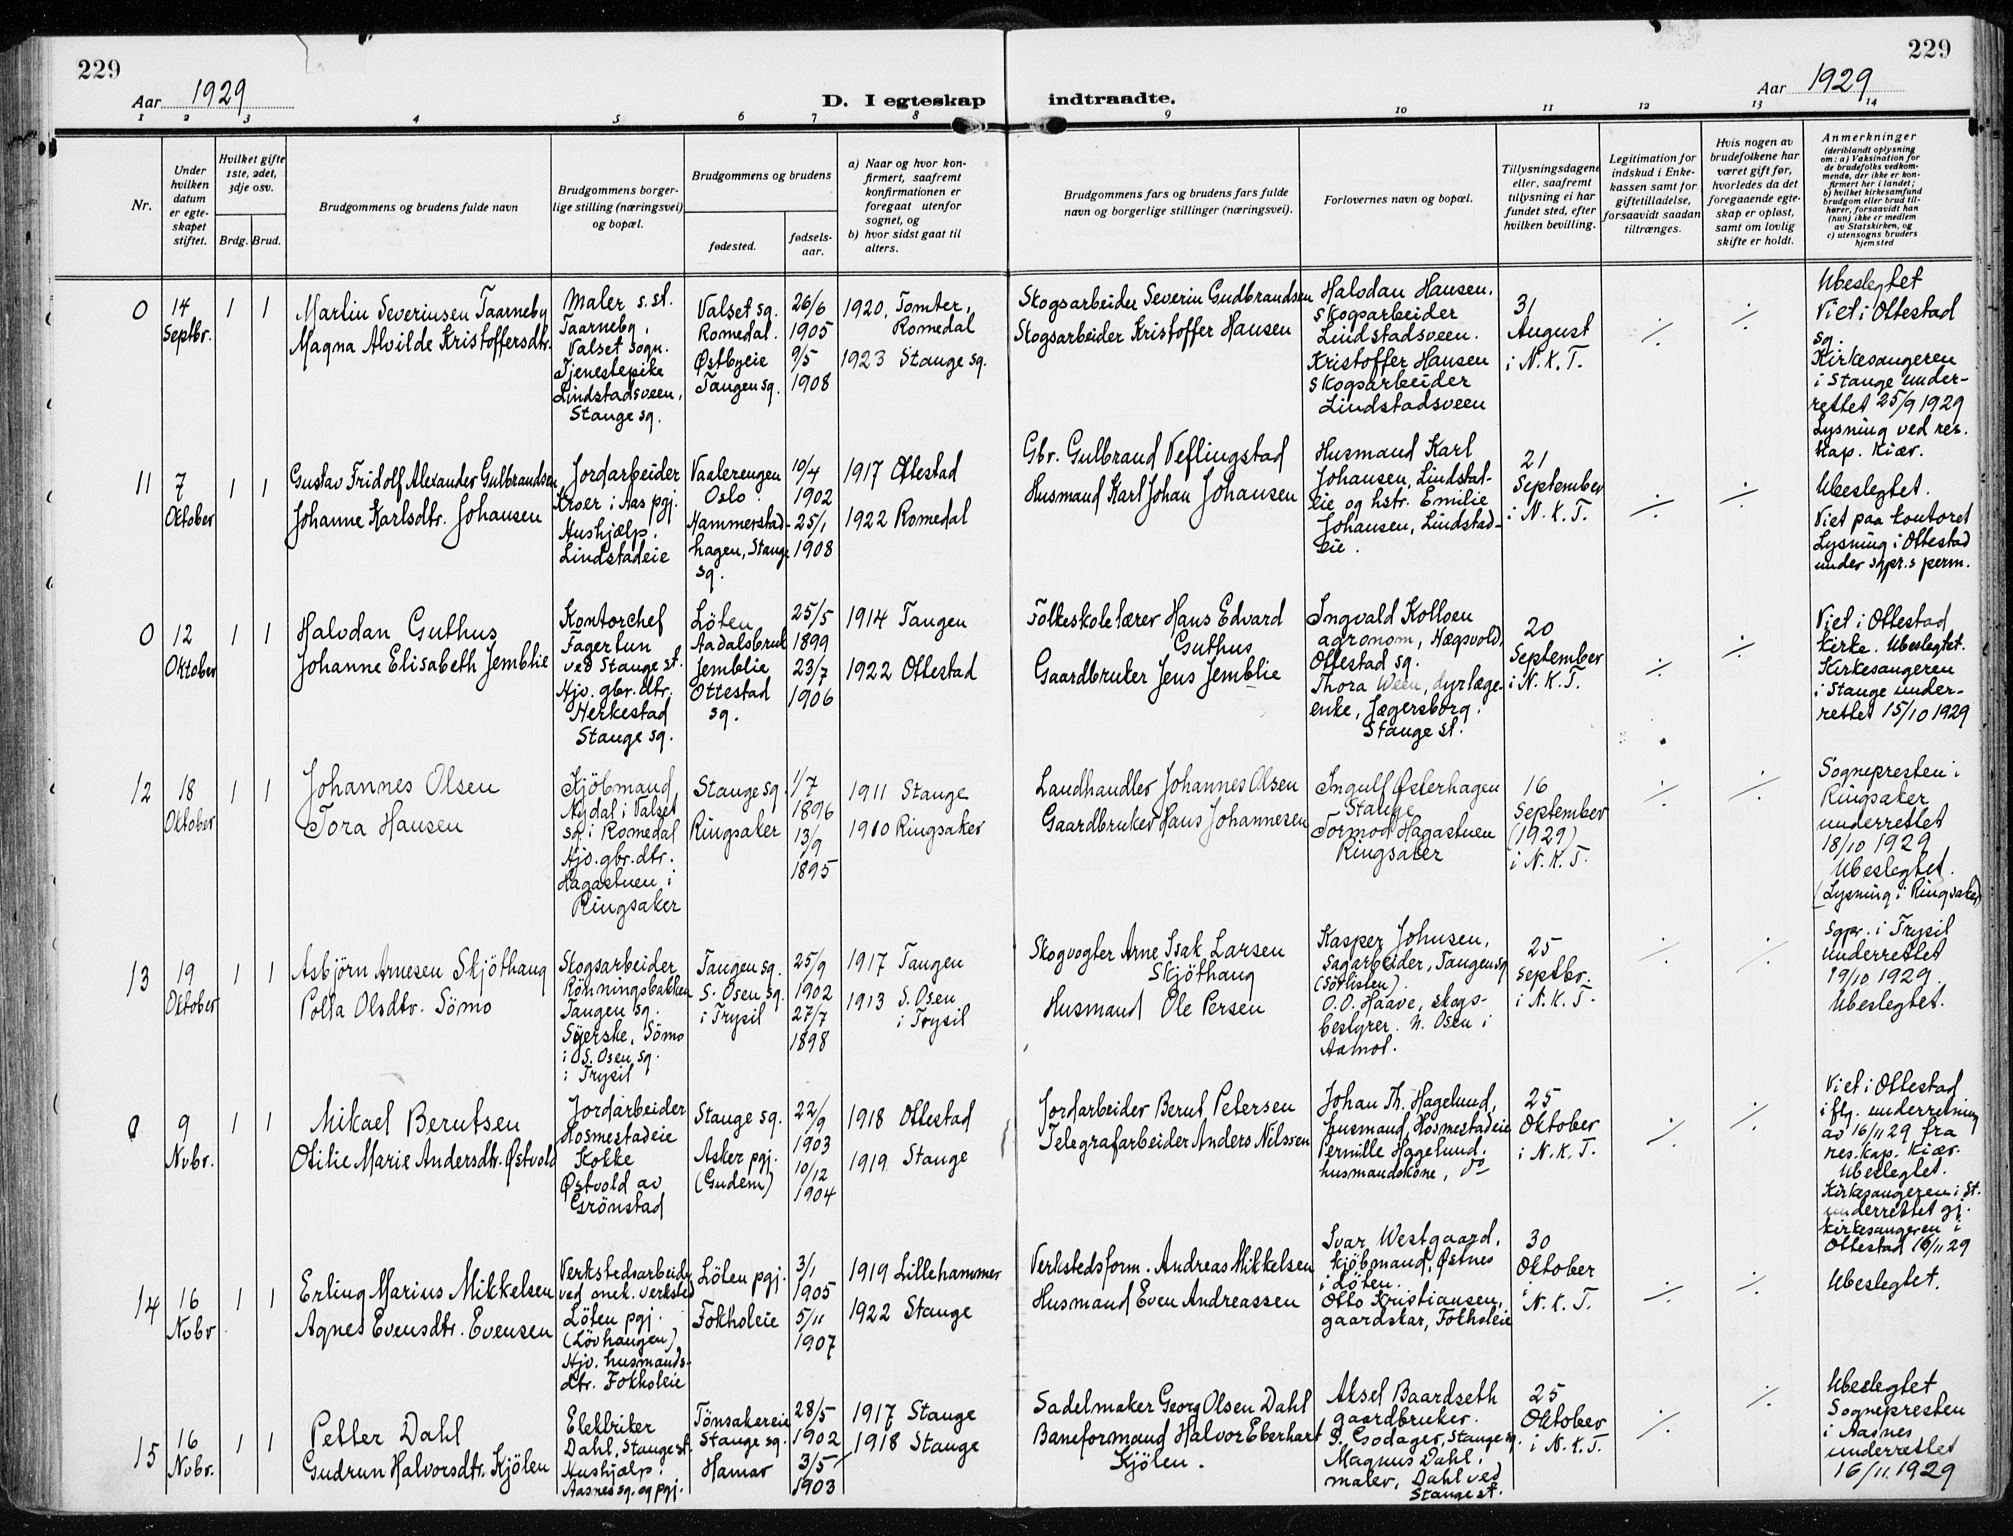 229
229
Aar 1929
D. I egteskap indtraadte.
Aar 1929
1 2 3 4 5 6 7 8 9 10 11 12 13 14
Nr.
Under hvilken datum er egte-skapet stiftet.
Hvilket gifte 1ste, 2det, 3dje osv.
Brdg. Brud.
Brudgommens og brudens fulde navn
Brudgommens borger-lige stilling (næringsvei) og bopæl.
Brudgommens og brudens
fødested.
fødsels-aar.
a) Naar og hvor kon-firmert, saafremt konfirmationen er foregaat utenfor sognet, og
b) hvor sidst gaat til alters.
Brudgommens fars og brudens fars fulde navn og borgerlige stillinger (næringsvei).
Forlovernes navn og bopæl.
Tillysningsdagene eller, saafremt tillysning ei har fundet sted, efter hvilken bevilling.
Legitimation for indskud i Enke-kassen samt for giftetilladelse, forsaavidt saadan tiltrænges.
Hvis nogen av brudefolkene har været gift før, hvorledes da det foregaaende egte-skap er opløst, samt om lovlig skifte er holdt.
Anmerkninger (deriblandt oplysning om: a) Vaksination for de brudefolks vedkom-mende, der ikke er kon-firmert her i landet; b) hvilket kirkesamfund brudgom eller brud til-hører, forsaavidt han (hun) ikke er medlem av Statskirken, og c) utensogns bruders hjemsted
0
14 Septbr.
1 1
Martin Severinsen Taarneby
Magna Alvilde Kristoffersdtr.
Maler s. st.
Taarneby,
Valset sogn.
Tjenestepike
Lindstadsveen,
Stange sg.
Valset sg.
Romedal.
Østbyeie
Tangen sg.
26/6
1905
9/5
1908
1920, Tomter,
Romedal
1923 Stange sg.
Skogsarbeider Severin Gudbrandsen
Skogsarbeider Kristoffer Hansen
Halvdan Hansen,
skogsarbeider
Lindstadsveen.
Kristoffer Hansen
skogsarbeider
Lindstadsveen
31
August
i N. K. T.
·/·
·/·
Ubeslegtet
Viet i Ottestad
sg.
Kirkesangeren
i Stange under-
rettet 25/9 1929
Lysning ved res.
kap. Kiær.
11
7
Oktober
1 1
Gustav Fridolf Alexander Gulbrandsen
Johanne Karlsdtr. Johansen
Jordarbeider
Kroer i Aas pgj.
Hushjælp,
Lindstadeie
Vaalerengen
Oslo.
Hammerstad-
hagen, Stange
sg.
10/4
1902
25/1
1908
1917 Ottestad
1922 Romedal
Gbr. Gulbrand Veflingstad
Husmand Karl Johan Johansen
Husmand Karl
Johansen, Lindstad-
eie og hstr. Emilie
Johansen, Lindstad-
eie.
21
September
i N. K. T.
·/·
·/·
Ubeslegtet.
Viet paa kontoret
Lysning i Ottestad
under sgpr.s perm.
0
12
Oktober
1 1
Halvdan Guthus
Johanne Elisabeth Jemblie
Kontorchef
Fagertun
ved Stange st.
Hjv. gbr. dtr.
Herkestad
Stange sg.
Löten
Aadalsbruk
Jemblie
Ottestad
sg.
25/5
1899
23/7
1906
1914 Tangen
1922 Ottestad
Folkeskolelærer Hans Edvard
Guthus
Gaardbruker Jens Jemblie
Ingvald Kolloen
agronom, Hægsvold,
Ottestad sg.
Thora Ween, dyrlæge-
enke, Jægersborg.
Stange st.
20
September
i N. K. T.
·/·
·/·
Viet i Ottestad
kirke. Ubeslegtet.
Kirkesangeren
i Stange under-
rettet 15/10 1929
12
18
Oktober
1 1
Johannes Olsen
Tora Hansen
Kjöbmand,
Nydal i Valset
sg. i Romedal
Hjv. gbr. dtr.
Hagastuen i
Ringsaker
Stange sg.
Ringsaker
1/7
1896
13/9
1895
1911 Stange
1910 Ringsaker
Landhandler Johannes Olsen
Gaardbruker Hans Johannesen
Ingulf Østerhagen
Stange
Tormod Hagastuen
Ringsaker
16
September
(1929)
i N. K. T.
·/·
·/·
Sognepresten i
Ringsaker
underrettet
18/10 1929
Ubeslegtet.
(Lysning i Ringsaker)
13
19
Oktober
1 1
Asbjörn Arnesen Skjöthaug
Polla Olsdtr. Sömo
Skogsarbeider
Rönningsbakken
Tangen sg.
Syerske, Sömo
i S. Osen sg.
i Trysil
Tangen sg.
S. Osen sg.
i Trysil
25/9
1902
27/7
1898
1917 Tangen
1913 S. Osen
i Trysil
Skogvogter Arne Isak Larsen
Skjöthaug
Husmand Ole Persen
Kasper Johnsen,
Sagarbeider, Tangen sg
O. O. Haave, skogs-
bestyrer. N. Osen i
Aamot.
25
Septbr.
i N. K. T.
·/·
·/·
Sgpr. i Trysil
underrettet
19/10 1929.
Ubeslegtet.
0
9
Nvbr.
1 1
Mikael Berntsen
Otilie Marie Andersdtr. Østvold
Jordarbeider
Hosmestadeie
Kokke
Østvold av
Grönstad
Stange sg.
Asker pgj.
(Gudem)
22/9
1903
10/12
1904
1918 Ottestad
1919 Stange
Jordarbeider Bernt Petersen
Telegrafarbeider Anders Nilssen
Johan Th. Hagelund,
husmand, Hosmestadeie
Pernille Hagelund,
husmandskone, do
25
Oktober
i N. K. T.
·/·
·/·
Viet i Ottestad
iflg. underretning
av 16/11 29 fra
res. kap. Kiær.
Ubeslegtet.
Kirkesangeren i St.
underrettet gj.
kirkesangeren i
Ottestad 16/11 29
14
16
Nvbr
1 1
Erling Marius Mikkelsen
Agnes Evensdtr. Evensen
Verkstedsarbeider
ved mek. verksted
Löten pgj.
(Lövhaugen)
Hjv. husmands-
dtr. Fokholeie
Löten pgj.
Fokholeie
3/1
1905
5/11
1907
1919 Lillehammer
1922 Stange
Verkstedsform. Andreas Mikkelsen
Husmand Even Andreassen
Ivar Westgaard,
kjöbmand, Østnes
i Löten.
Otto Kristiansen,
gaardskar, Fokholeie
30
Oktober
i N. K. T.
·/·
·/·
Ubeslegtet.
15
16
Nvbr.
1 1
Petter Dahl
Gudrun Halvorsdtr. Kjölen
Elektriker
Dahl, Stange st.
Hushjælp.
Aasnes sg. og pgj.
Tönsakereie
Stange sg.
Hamar
28/5
1902
3/5
1903
1917 Stange
1918 Stange
Sadelmaker Georg Olsen Dahl
Baneformand Halvor Eberhart
Kjölen.
Aksel Baardseth
gaardbruker.
Stange sg.
Magnus Dahl,
maler, Dahl ved
Stange st.
25
Oktober
i N. K. T.
·/·
·/·
Ubeslegtet
Sognepresten
i Aasnes
underrettet
16/11 1929